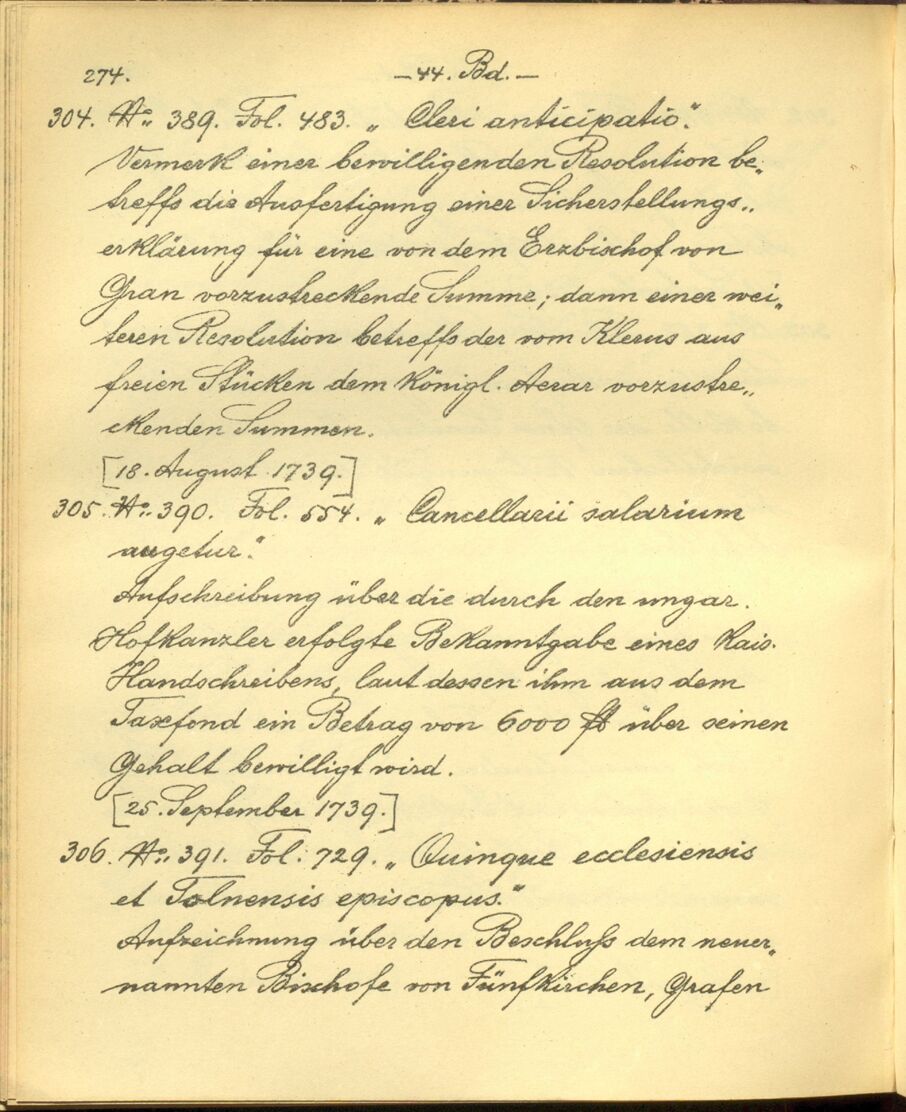 274. — 44. Bd. —
304. No. 389. Fol. 483. „ Cleri anticipatio."
Vermerk einer bewilligenden Resolution be„
treffs die Ausfertigung einer Sicherstellungs„
erklärung für eine von dem Erzbischof von
Gran vorzustreckende Summe; dann einer wei„
teren Resolution betreffs der vom Klerus aus
freien Stücken dem königl. Aerar vorzustre„
ckenden Summen.
[18. August 1739.]
305. No. 390. Fol. 554. „ Cancellarii salarium
augetur."
Aufschreibung über die durch den ungar.
Hofkanzler erfolgte Bekanntgabe eines Kais.
Handschreibens, laut dessen ihm aus dem
Taxfond ein Betrag von 6000 fl über seinen
Gehalt bewilligt wird.
[25. September 1739.]
306. No. 391. Fol. 729. „ Quinque ecclesiensis
et Tolnensis episcopus."
Aufzeichnung über den Beschluss dem neuer„
nannten Bischofe von Fünfkirchen, Grafen